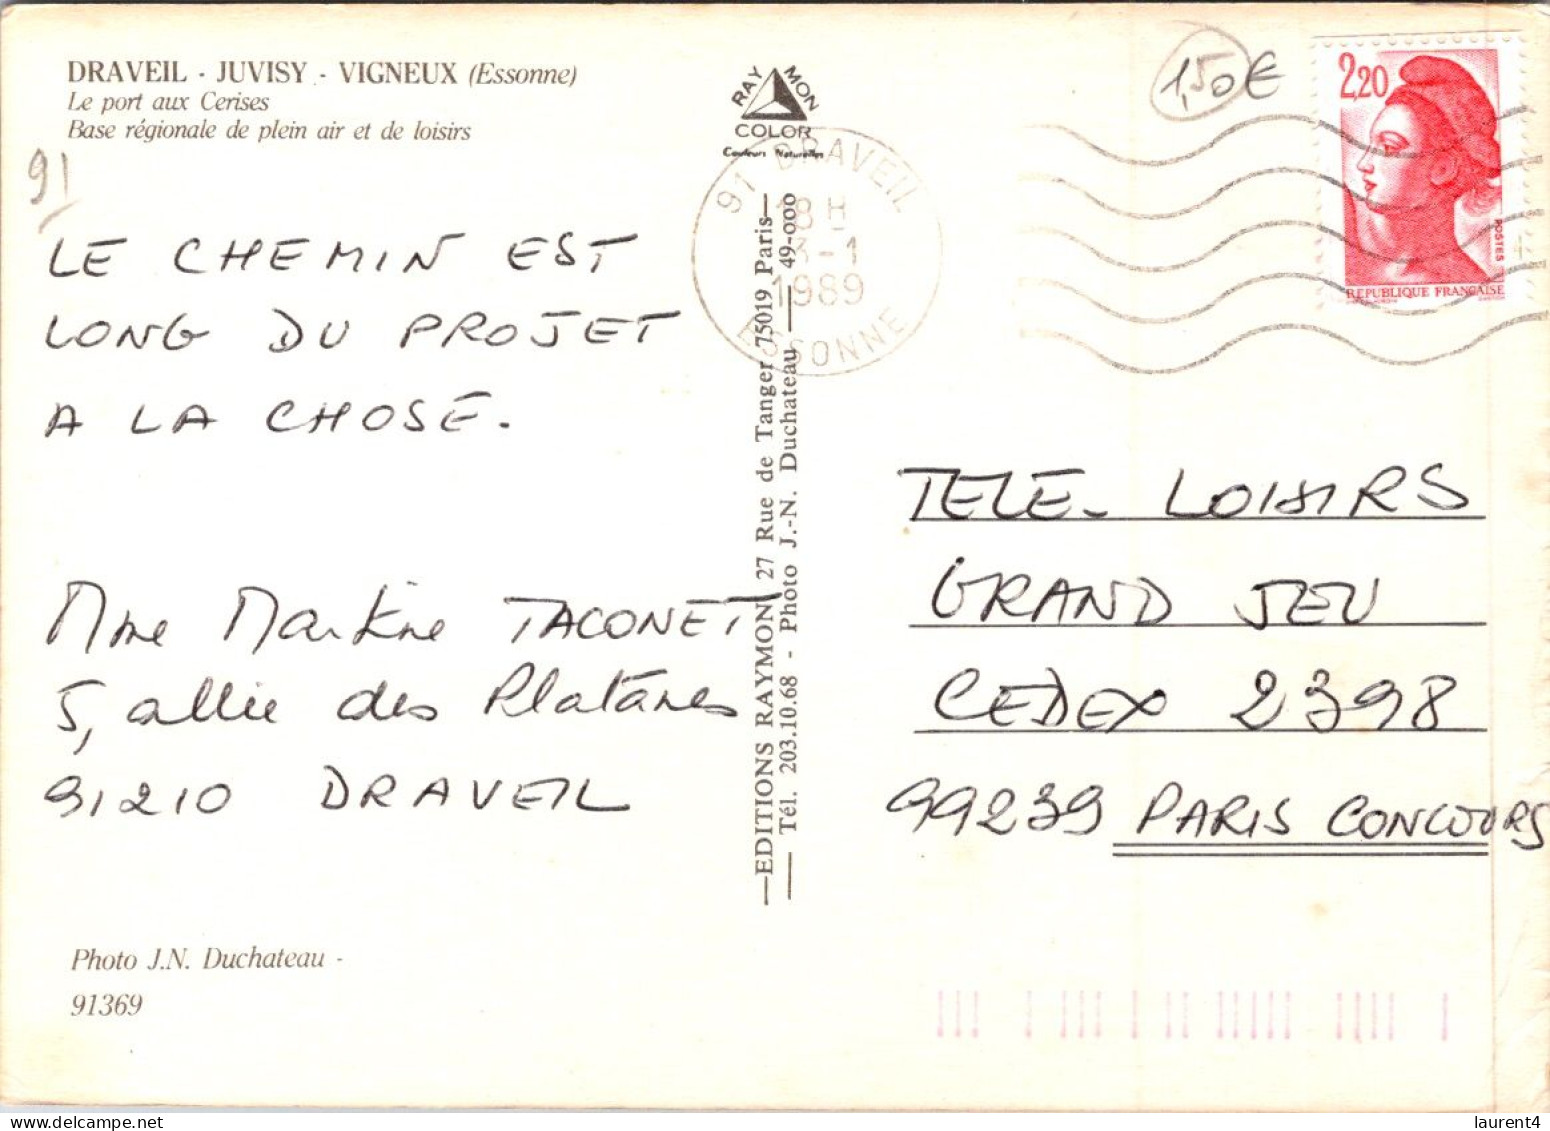 DRAVEIL - JUVISY - VIGNEUX (Essonne)
Le port aux Cerises
Base régionale de plein air et de loisirs
91
LE CHEMIN EST
LONG DU PROJET
A LA CHOSE.
Mme Martine TACONET
5, allée des Platanes
91210 DRAVEIL
Photo J.N. Duchateau -
91369
RAYMON
COLOR
Couleurs Naturelles
EDITIONS RAYMON 27 Rue de Tanger 75019 Paris
Tél. 203.10.68 - Photo J.-N. Duchateau 49-000
91 DRAVEIL
18 H
3-1
1989
ESSONNE
1,50€
2,20
POSTES
REPUBLIQUE FRANÇAISE
TELE-LOISIRS
GRAND JEU
CEDEX 2398
99239 PARIS CONCOURS
laurent4